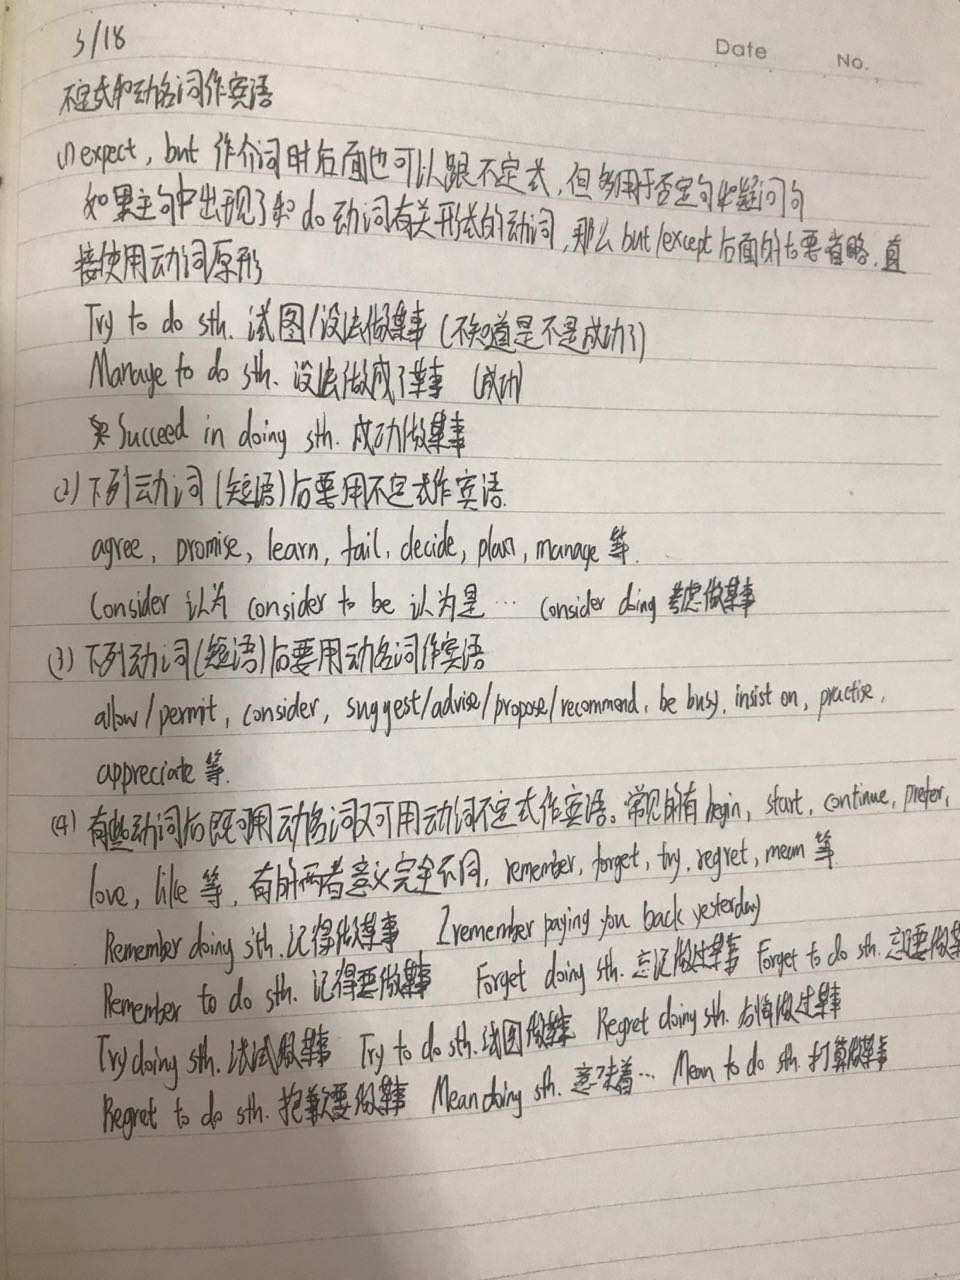 3/18
Date No.
不定式和动名词作宾语
(1) expect, but 作介词时后面也可以跟不定式, 但多用于否定句和疑问句
如果主句中出现了和 do 动词有关形式的动词, 那么 but/except 后面的 to 要省略, 直
接使用动词原形
Try to do sth. 试图/设法做某事 (不知道是不是成功了)
Manage to do sth. 设法做成了某事 (成功)
Succeed in doing sth. 成功做某事
(2) 下列动词(短语)后要用不定式作宾语.
agree, promise, learn, fail, decide, plan, manage 等.
Consider 认为 consider to be 认为是… consider doing 考虑做某事
(3) 下列动词(短语)后要用动名词作宾语
allow/permit, consider, suggest/advise/propose/recommend, be busy, insist on, practise,
appreciate 等.
(4) 有些动词后既可用动名词又可用动词不定式作宾语。常见的有 begin, start, continue, prefer,
love, like 等, 有的两者意义完全不同, remember, forget, try, regret, mean 等
Remember doing sth. 记得做某事 I remember paying you back yesterday
Remember to do sth. 记得要做某事 Forget doing sth. 忘记做过某事 Forget to do sth. 忘记要做某
Try doing sth. 尝试做某事 Try to do sth. 试图做某事 Regret doing sth. 后悔做过某事
Regret to do sth. 抱歉要做某事 Mean doing sth. 意味着… Mean to do sth. 打算做某事